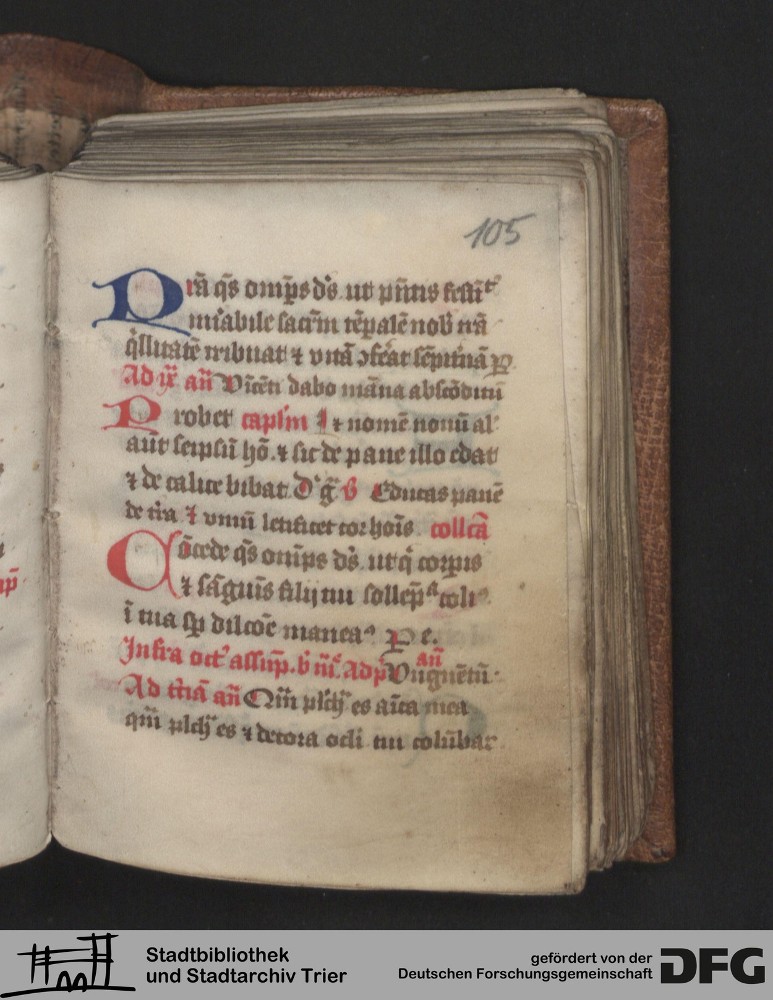 105
Prã q̃s omp̃s ds̃ ut pñtis festĩt
mĩabile sacrm̃ tẽpalẽ nob̃ nã
tribuat ⁊ vitã ꝯferat sẽpitnã ꝑ
Ad ix añ Vĩcẽti dabo mãna abscõditũ
Probet caplm̃ I ⁊ nomẽ nouũ al
aut̃ seipsũ hõ ⁊ sic de pane illo edat
⁊ de calice bibat D g̃ v̾ Educas panẽ
de tr̃a ⁊ vinũ letificet cor hoĩs collcã
Cõcede q̃s omp̃s ds̃ ut q̃ corpis
⁊ sãguĩs filij tui sollẽp̃ coli
ĩ tua sp̃ dilcõe maneaᵗ ꝑ e.
Infra oct̾ assũp. b̃ m̃. Ad p̾ añ Vnguẽtũ
Ad t̾ciã añ Qm̃ plch̾ es aĩca mea
qm̃ plch̾ es ⁊ decora ocli tui colũbar
Stadtbibliothek
und Stadtarchiv Trier
gefördert von der
Deutschen Forschungsgemeinschaft
DFG